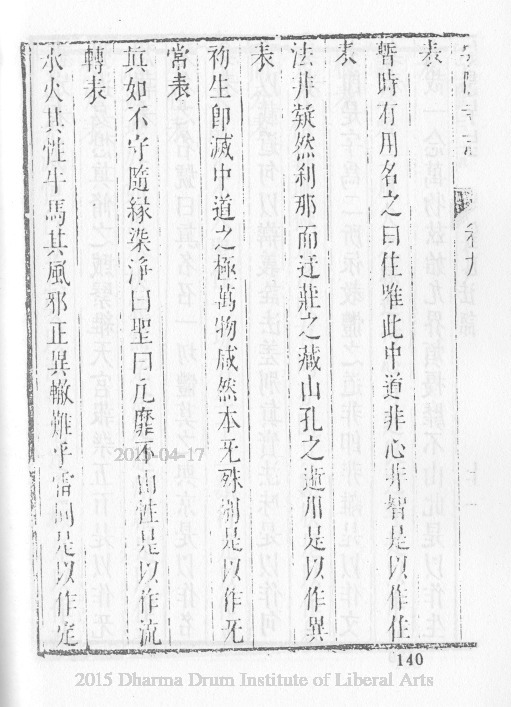 志 卷九
表
暫時有用名之曰住唯此中道非心非智是以作住
表
法非凝然刹那而迁莊之藏山孔之逝川是以作異
表
初生卽滅中道之極萬物咸然本无殊別是以作无
常表
真如不守隨緣染淨曰聖曰凡靡不由性是以作流
轉表
水火其性牛馬其風邪正異轍難乎雷同是以作定
140
2019-04-17
2015 Dharma Drum Institute of Liberal Arts